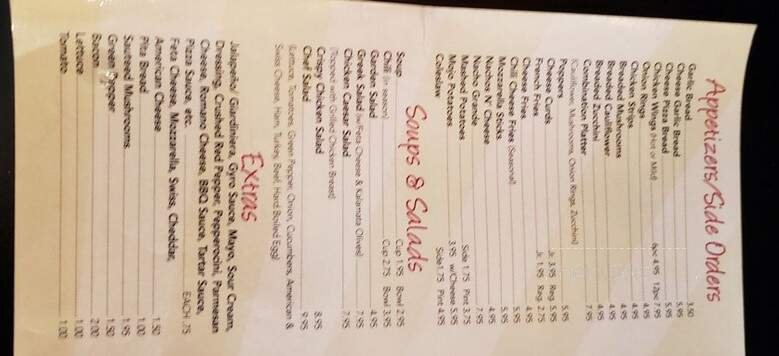 Appetizers/Side Orders
Garlic Bread 3.50
Cheese Garlic Bread 5.95
Cheese Pizza Bread 5.95
Chicken Wings (Hot or Mild) 6pc 4.95 12pc 7.95
Onion Rings 4.95
Chicken Strips 4.95
Breaded Mushrooms 4.95
Breaded Cauliflower 4.95
Breaded Zucchini 4.95
Combination Platter 7.95
(Cauliflower, Mushrooms, Onion Rings, Zucchini)
Poppers 5.95
Cheese Curds Jr. 3.95 Reg. 5.95
French Fries Jr. 1.95 Reg. 2.75
Cheese Fries 4.95
Chili Cheese Fries (Seasonal) 5.95
Mozzarella Sticks 5.95
Nachos N' Cheese 4.95
Nacho Grande 7.95
Mashed Potatoes Side 1.75 Pint 3.75
Mojo Potatoes 3.95 w/Cheese 5.95
Coleslaw Side1.75 Pint 4.95
Soups & Salads
Soup Cup 1.95 Bowl 2.95
Chili (in season) Cup 2.75 Bowl 3.95
Garden Salad 4.95
Greek Salad (w/Feta Cheese & Kalamata Olives) 7.95
Chicken Caesar Salad 7.95
(Topped with Grilled Chicken Breast)
Crispy Chicken Salad 8.95
Chef Salad 9.95
(Lettuce, Tomatoes, Green Pepper, Onion, Cucumbers, American &
Swiss Cheese, Ham, Turkey, Beef, Hard Boiled Egg)
Extras
Jalapeño/ Giardiniera, Gyro Sauce, Mayo, Sour Cream,
Dressing, Crushed Red Pepper, Pepperocini, Parmesan
Cheese, Romano Cheese, BBQ Sauce, Tartar Sauce,
Pizza Sauce, etc. EACH .75
Feta Cheese, Mozzarella, Swiss, Cheddar,
American Cheese 1.50
Pita Bread 1.00
Sauteed Mushrooms 1.95
Green Pepper 1.50
Bacon 2.00
Lettuce 1.00
Tomato 1.00